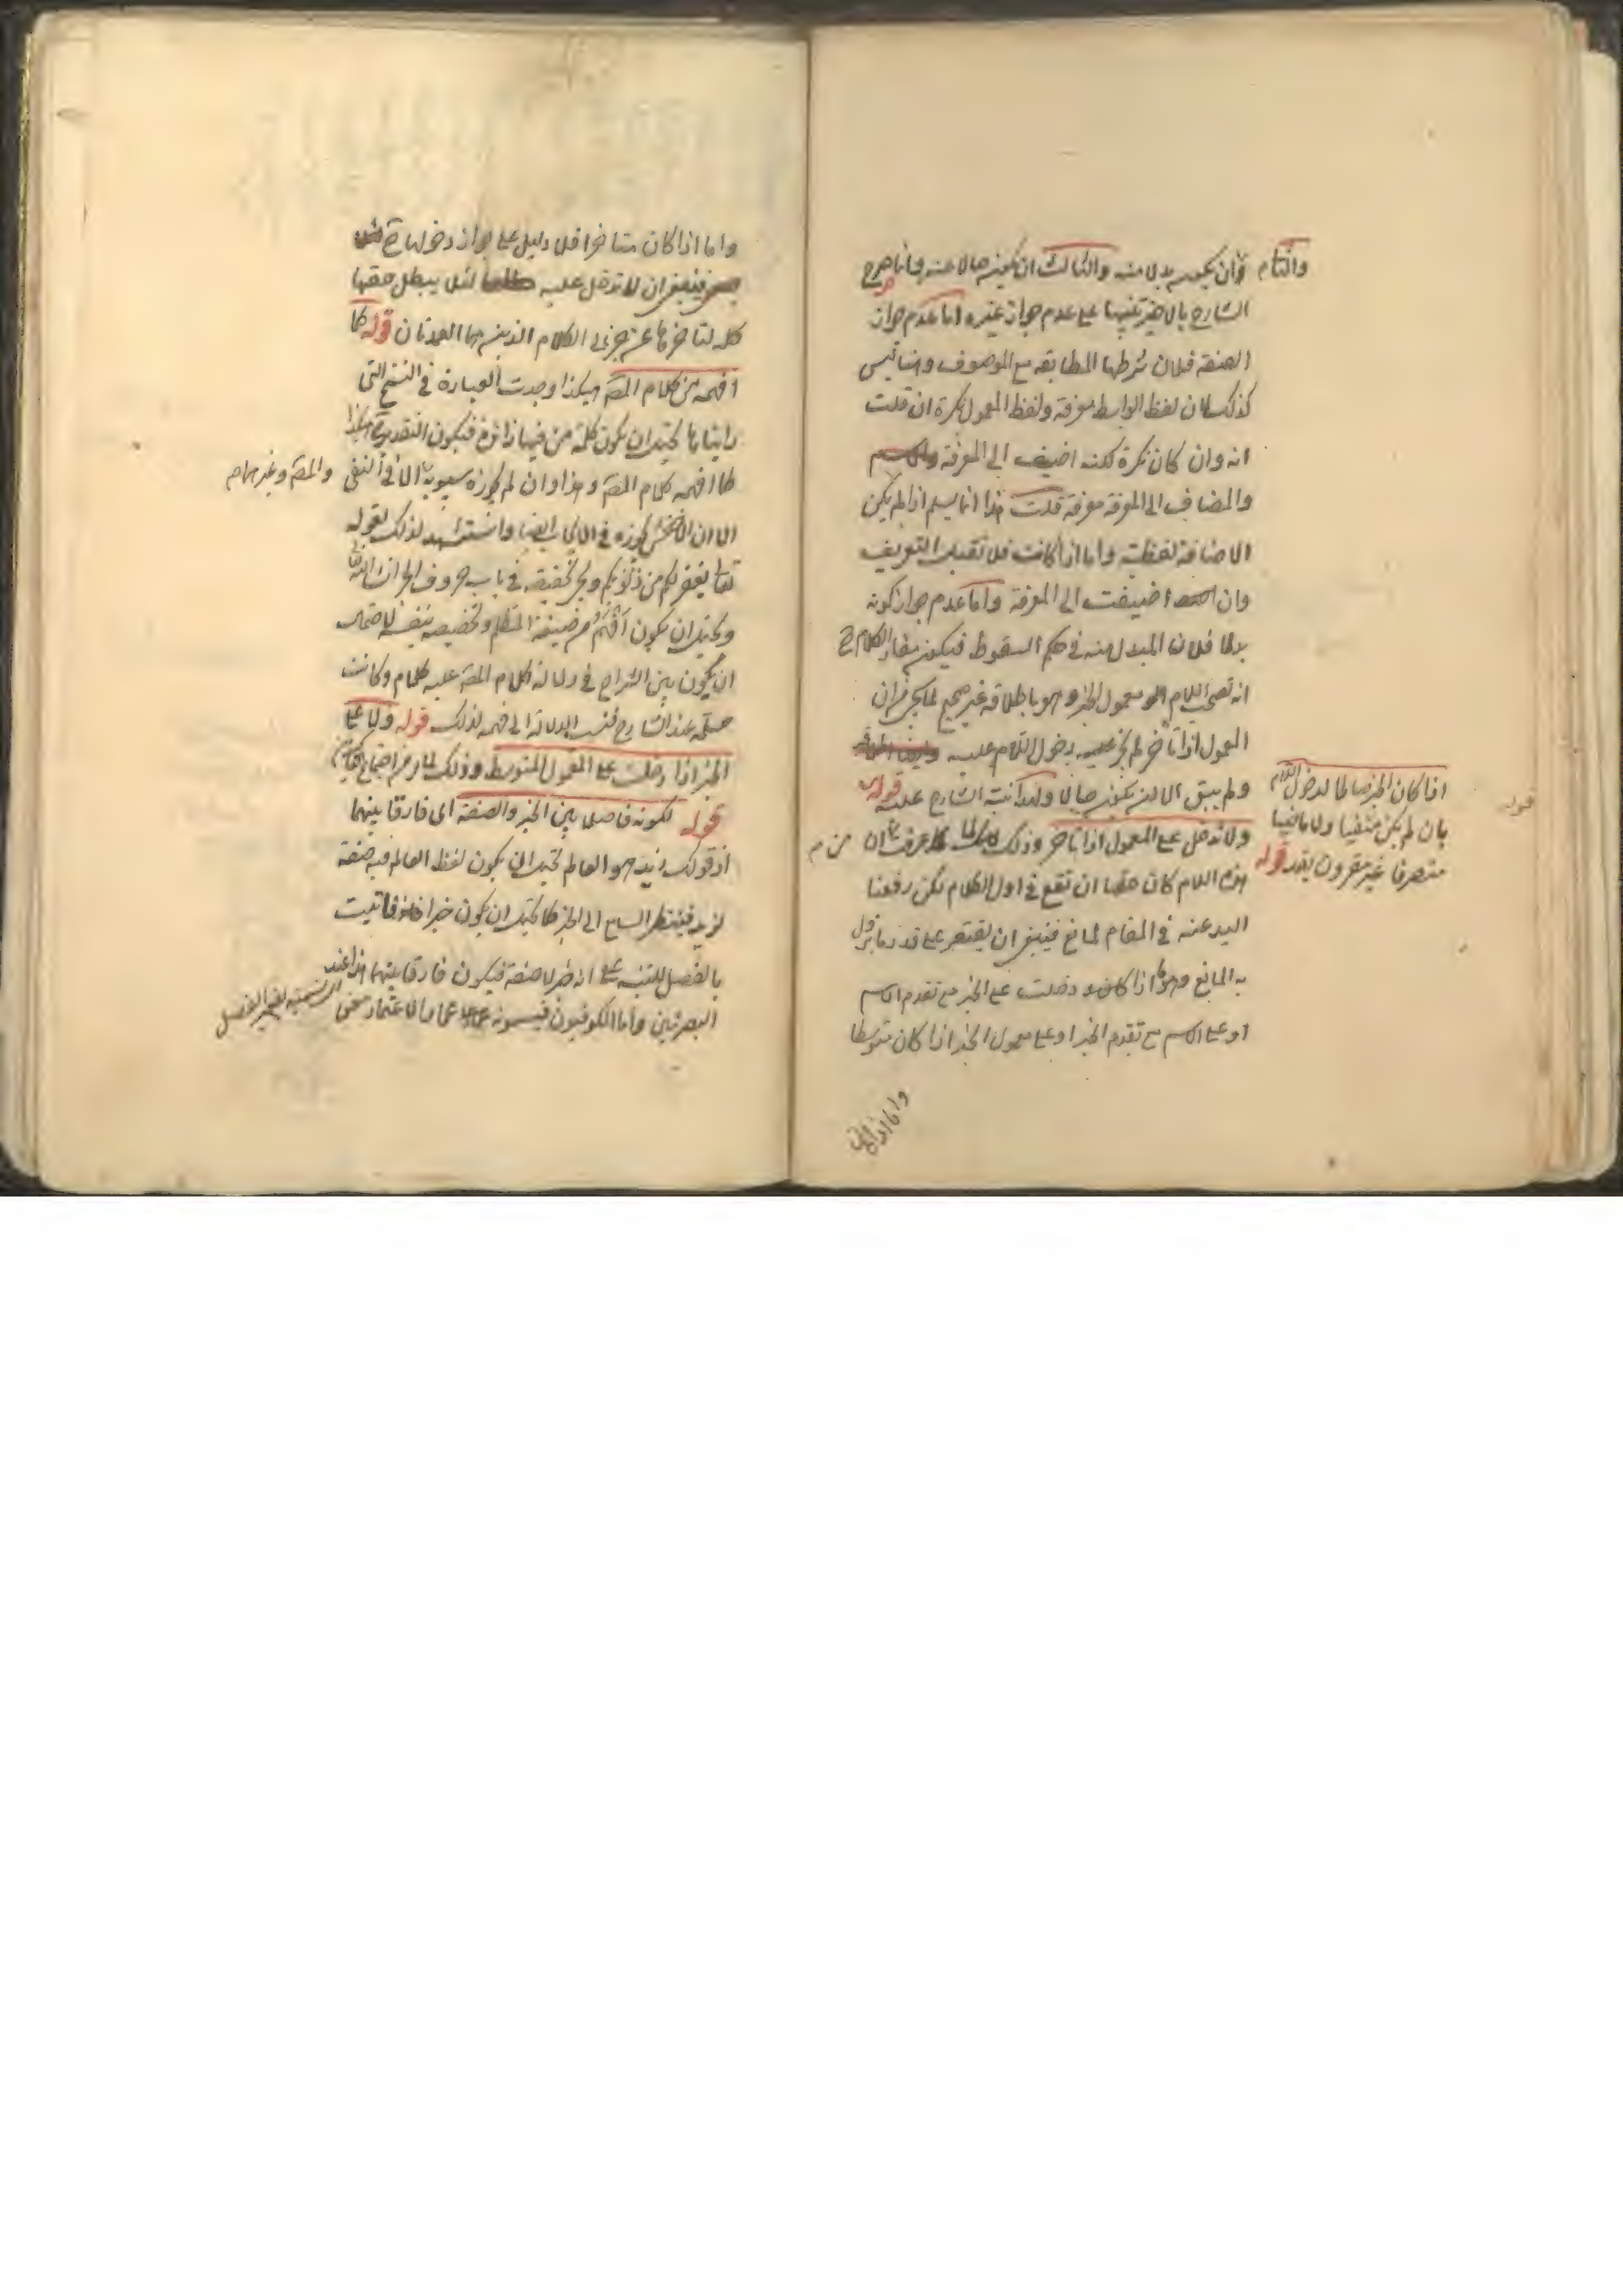 والثا م وان يكون بدلا منه والثالث ان يكون حالا عنه وانما صرح
الشارح بالاخير تنبيها على عدم جواز غيره اما عدم جواز
الصفة فلان شرطها المطابقة مع الموصوف وهنا ليس
كذلك لان لفظ الواسط معرفة ولفظ المعمول نكرة ان قلت
انه وان كان نكرة لكنه اضيف الى المعرفة
والمضاف الى المعرفة معرفة قلت هذا انما يسلم اذا لم يكن
الاضافة لفظية واما اذا كانت فلا تفيد التعريف
وان اضيفت الى المعرفة واما عدم جواز كونه
بدلا فلان المبدل منه في حكم السقوط فيكون مفاد الكلام ح
انه تصحب اللام معمول الخبر وهو باطلاقه غير صحيح لما يجئ من ان
المعمول اذا تأخر لم يجز دخول اللام عليه
ولم يبق الا ان يكون حالا ولهذا نبه الشارح عليه قوله
اذا كان الخبر صالحا لدخول اللام
بان لم يكن منفيا ولا ماضيا
متصرفا غير مقرون بقد قوله
ولا تدخل على المعمول اذا تأخر وذلك لما عرفت ان من م
هذه اللام كان حقها ان تقع في اول الكلام لكن رفعنا
اليد عنه في المقام لمانع فينبغي ان يقتصر على قدر ما يزول
به المانع وهو ما اذا دخلت على الخبر مع تقدم الاسم
او على الاسم مع تقدم الخبر او على معمول الخبر اذا كان متوسطا
واما اذا كان
قوله
واما اذا كان متأخرا فلا دليل على جواز دخولها ح
فينبغي ان لا تدخل عليه لئلا يبطل حقها
كله لتأخرها عن جزئي الكلام الذين هما العمدتان قوله كما
افهمه من كلام المصـ هكذا وجدت العبارة في النسخ التي
رايناها يحتمل ان يكون كلمة من فيها زائدة فيكون التقدير هكذا
كما افهمه كلام المصـ وهذا وان لم يجوزه سيبويه الا في النفي والمصـ وغيرهما م
الا ان الاخفش يجوزه في الايجاب ايضا واستشهد لذلك بقوله
تعالى يغفر لكم من ذنوبكم ويجئ تحقيقه في باب حروف الجر ان شاء الله
ويحتمل ان يكون أفهم صيغة المتكلم وتخصيصه بنفسه لاحتمال
ان يكون بين الشراح في دلالة كلام المصـ عليه كلام وكانت
مسلمة عند الشارح فنسب الدلالة الى فهمه لذلك قوله ولا على
الخبر اذا دخلت على المعمول المتوسط وذلك لما مر من اجتماع
قوله لكونه فاصلا بين الخبر والصفة اى فارقا بينهما
اذ قولك زيد هو العالم يحتمل ان يكون لفظ العالم فيه صفة
لزيد فينتظر السامع الى الخبر كما يحتمل ان يكون خبرا فاتيت
بالفصل للتنبيه على انه خبر لا صفة فيكون فارقا بينهما هذا عند
البصريين واما الكوفيون فيسمونه عمادا والاعتماد معنى التسمية بضمير الفصل